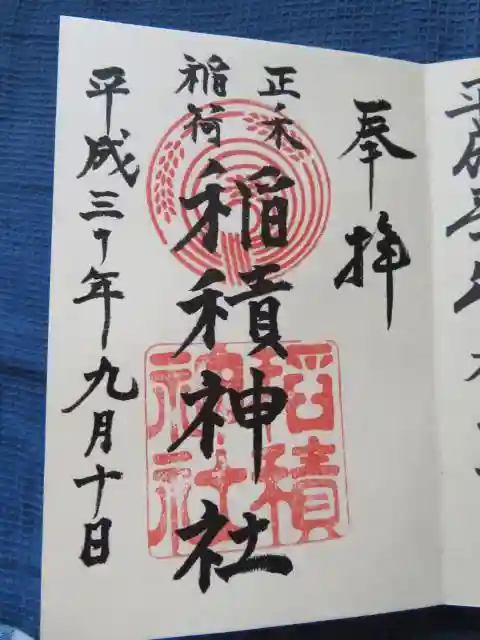 奉拝
正木
稲荷
稲積神社
稲積
神社
平成三十年九月十日